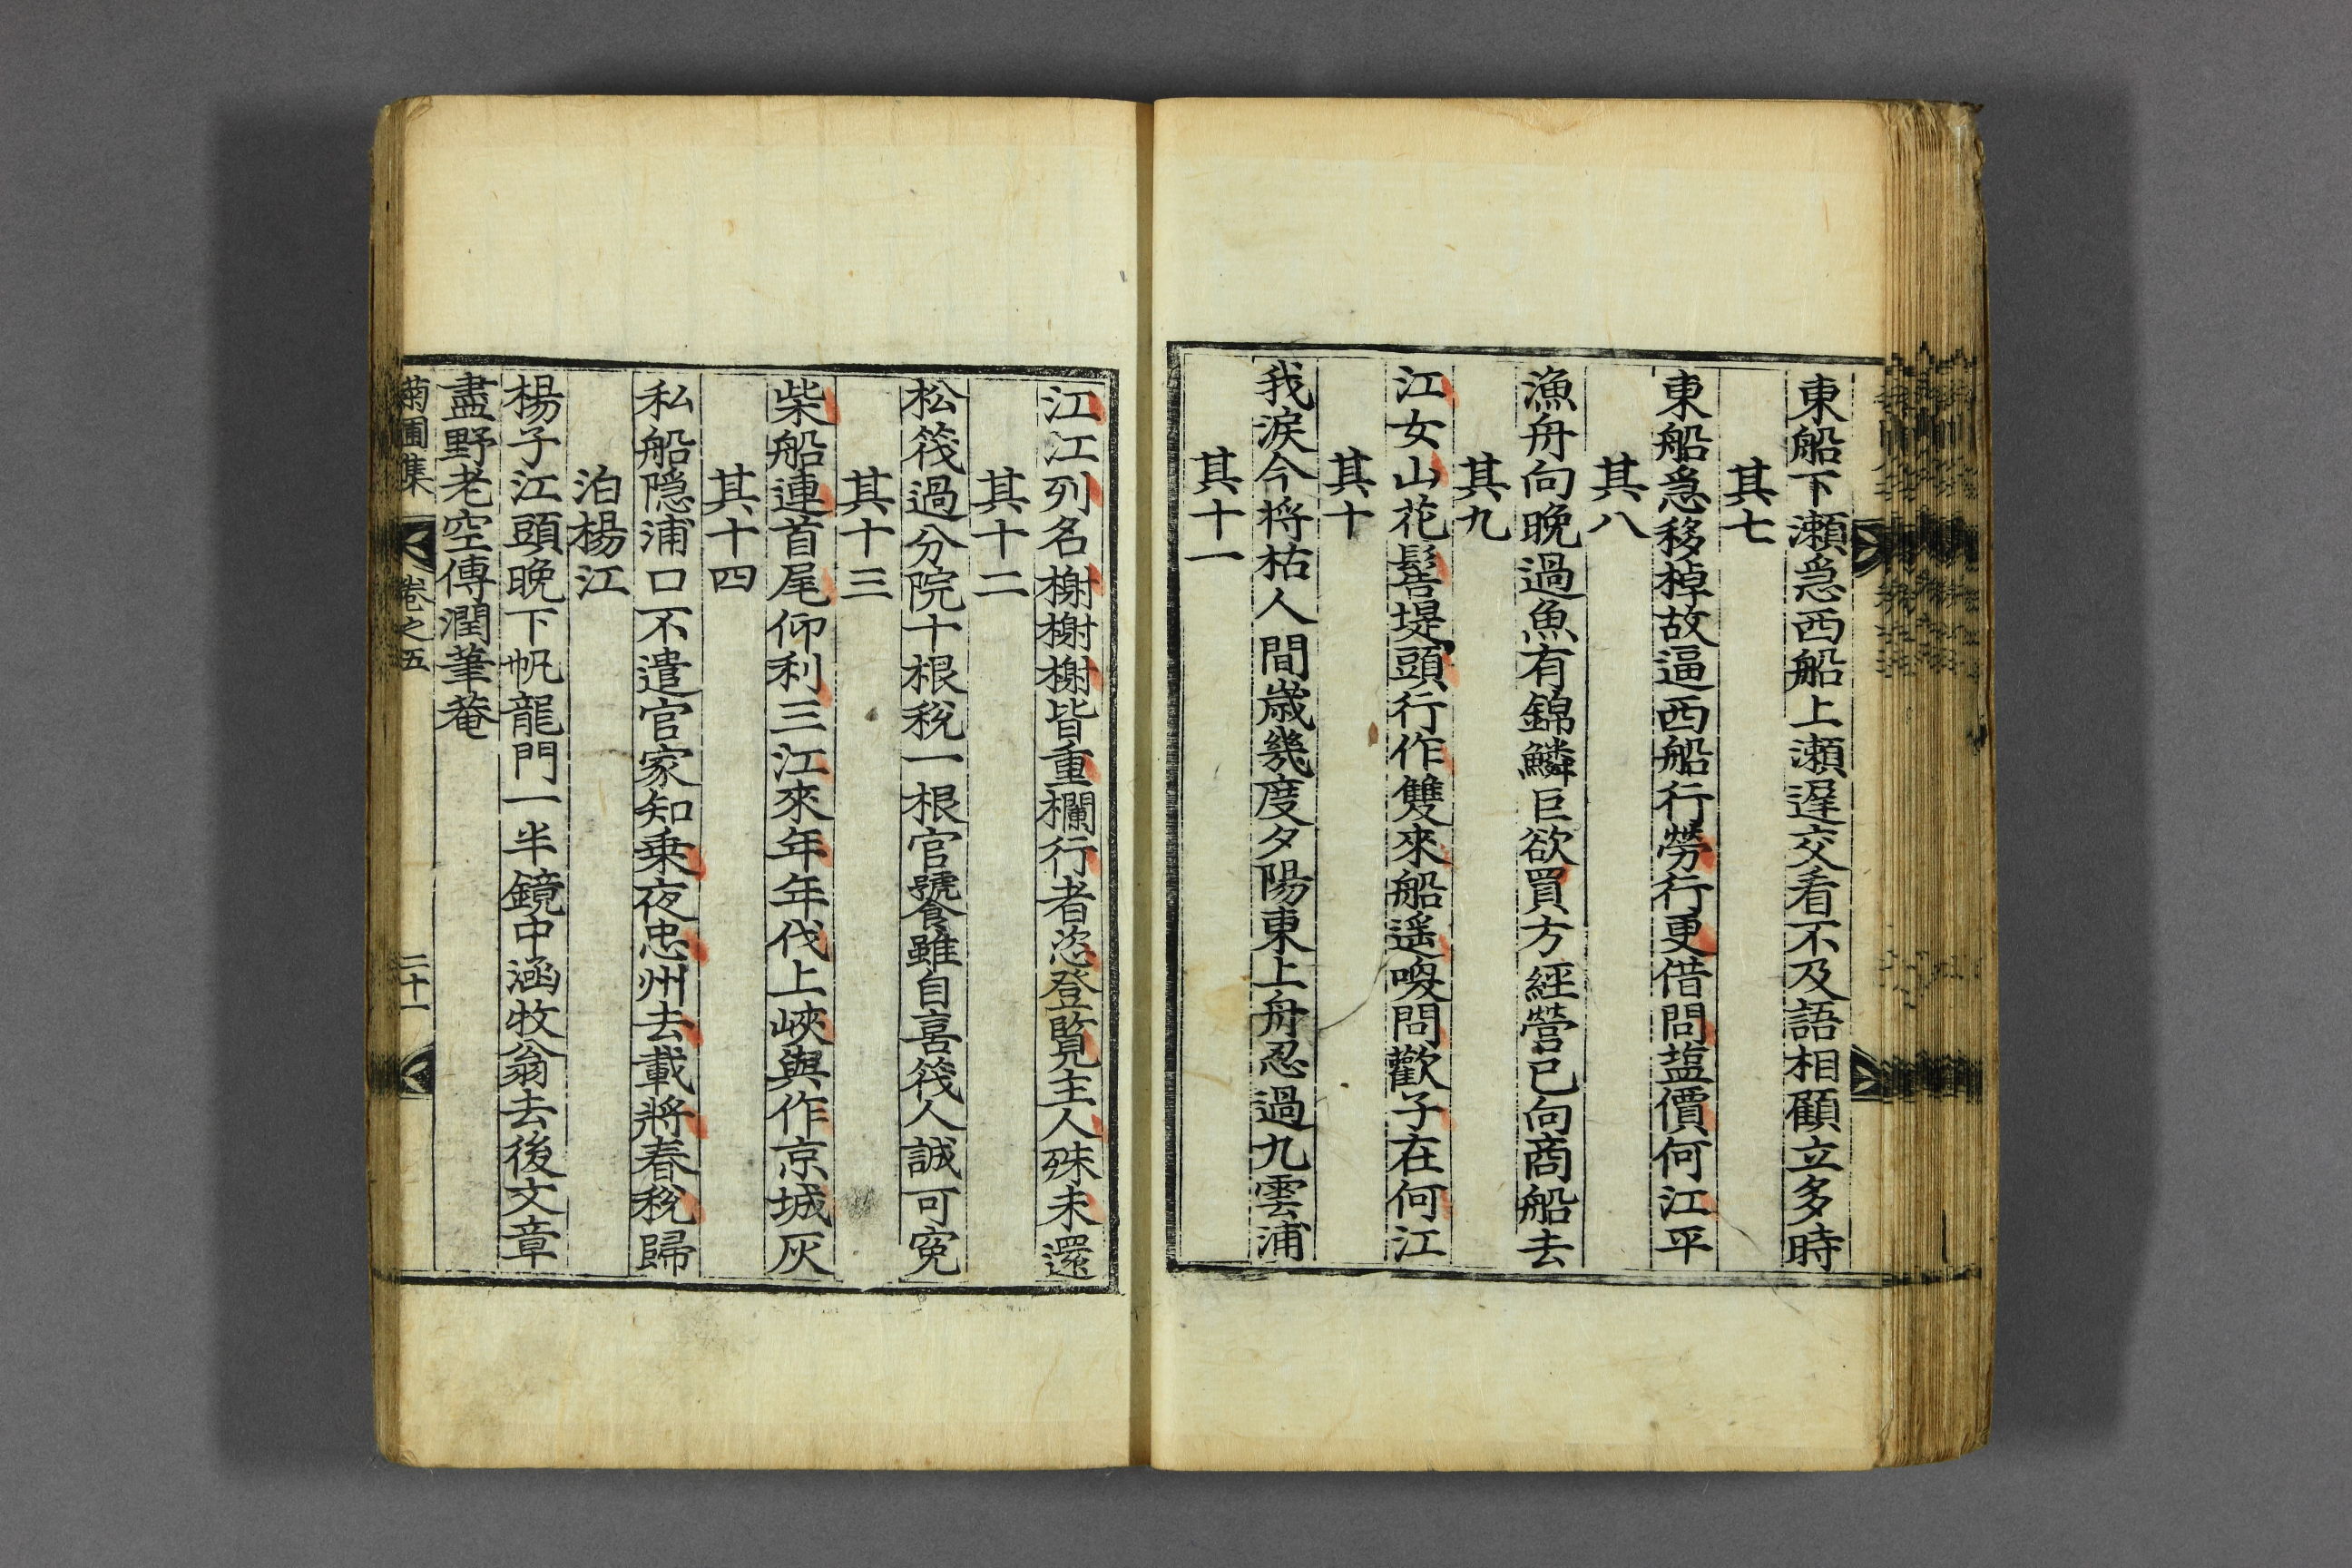 東船下瀨急西船上瀨遲交看不及語相顧立多時
其七
東船急移棹故逼西船行勞行更借問塩價何江平
其八
漁舟向晚過魚有錦鱗巨欲買方經營已向商船去
其九
江女山花髻堤頭行作雙來船遥喚問歡子在何江
其十
我淚今将枯人間歲幾度夕陽東上舟忍過九雲浦
其十一
江江列名榭榭榭皆重欄行者恣登覧主人殊未還
其十二
松筏過分院十根稅一根官饕雖自喜筏人誠可寃
其十三
柴船連首尾仰利三江來年年伐上峽與作京城灰
其十四
私船隱浦口不遣官家知乗夜忠州去載將春稅歸
泊楊江
楊子江頭晚下帆龍門一半鏡中涵牧翁去後文章
盡野老空傳潤筆菴
菊圃集 卷之五 二十一